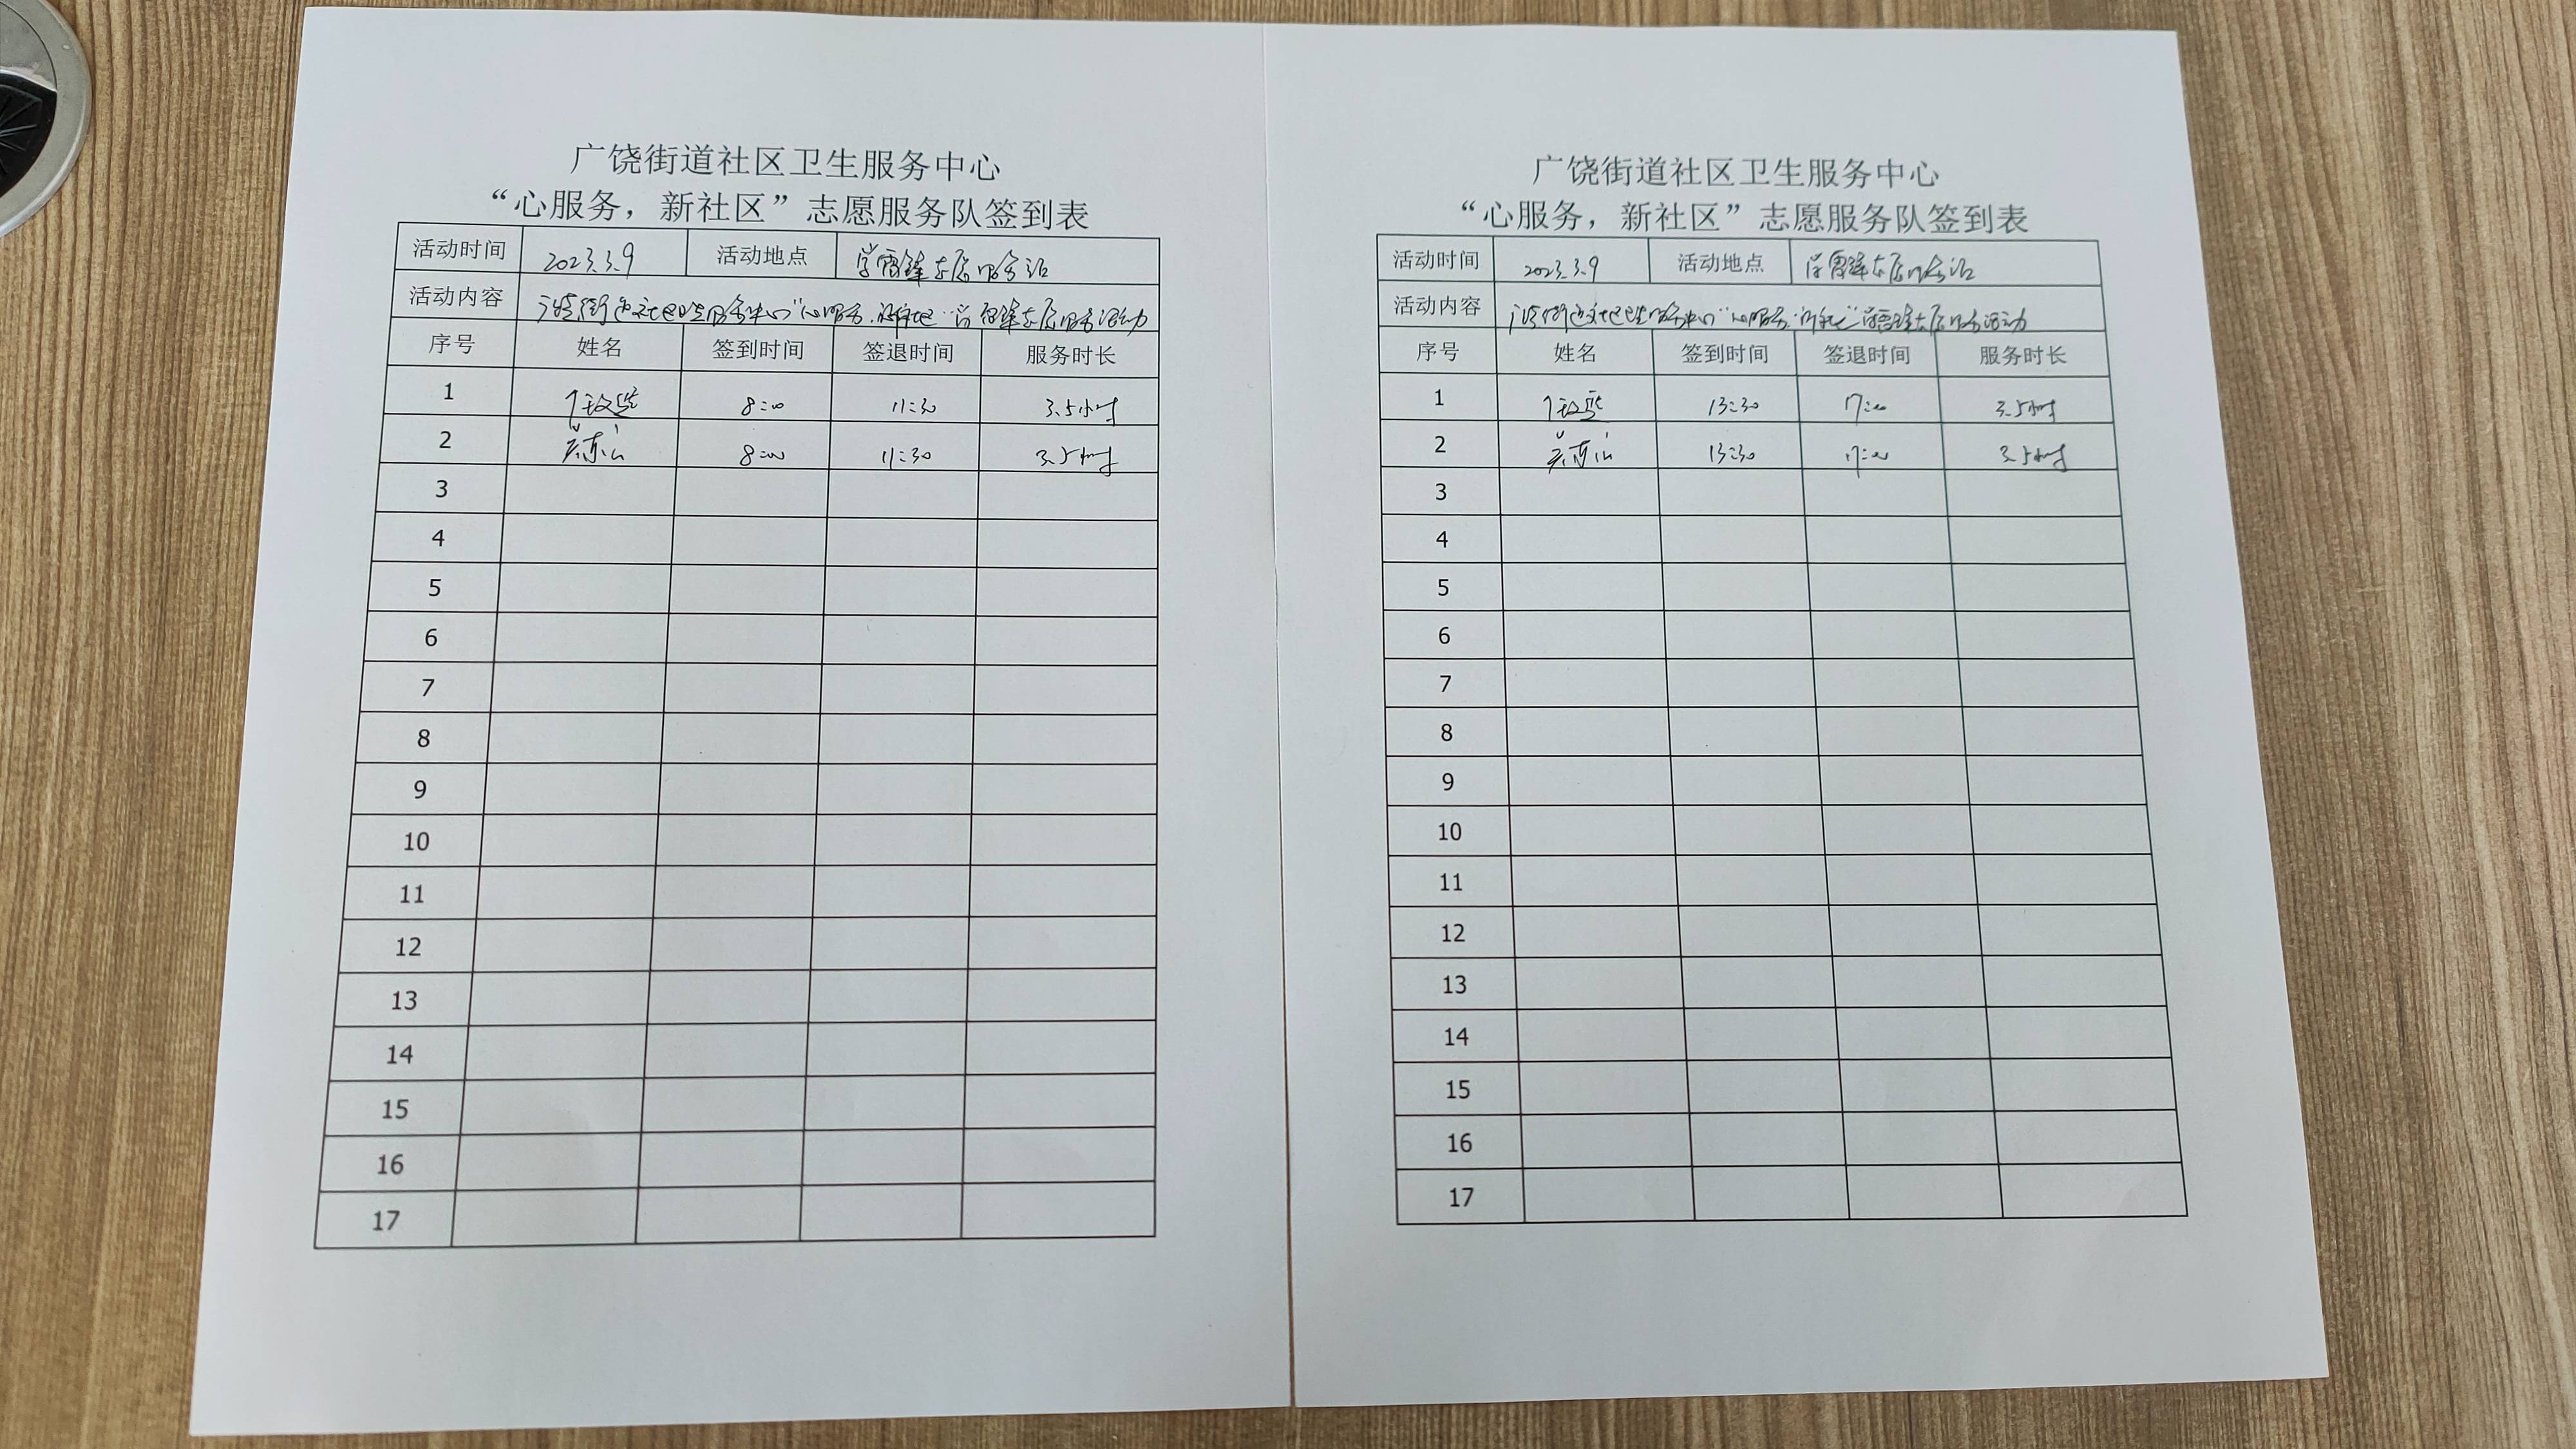 广饶街道社区卫生服务中心
“心服务，新社区”志愿服务队签到表
活动时间 2023.3.9 活动地点 学雷锋志愿服务站
活动内容 广饶街道社区卫生服务中心“心服务，新社区”学雷锋志愿服务活动
序号 姓名 签到时间 签退时间 服务时长
1 8:00 11:30 3.5小时
2 8:00 11:30 3.5小时
3
4
5
6
7
8
9
10
11
12
13
14
15
16
17
广饶街道社区卫生服务中心
“心服务，新社区”志愿服务队签到表
活动时间 2023.3.9 活动地点 学雷锋志愿服务站
活动内容 广饶街道社区卫生服务中心“心服务，新社区”学雷锋志愿服务活动
序号 姓名 签到时间 签退时间 服务时长
1 13:30 17:00 3.5小时
2 13:30 17:00 3.5小时
3
4
5
6
7
8
9
10
11
12
13
14
15
16
17